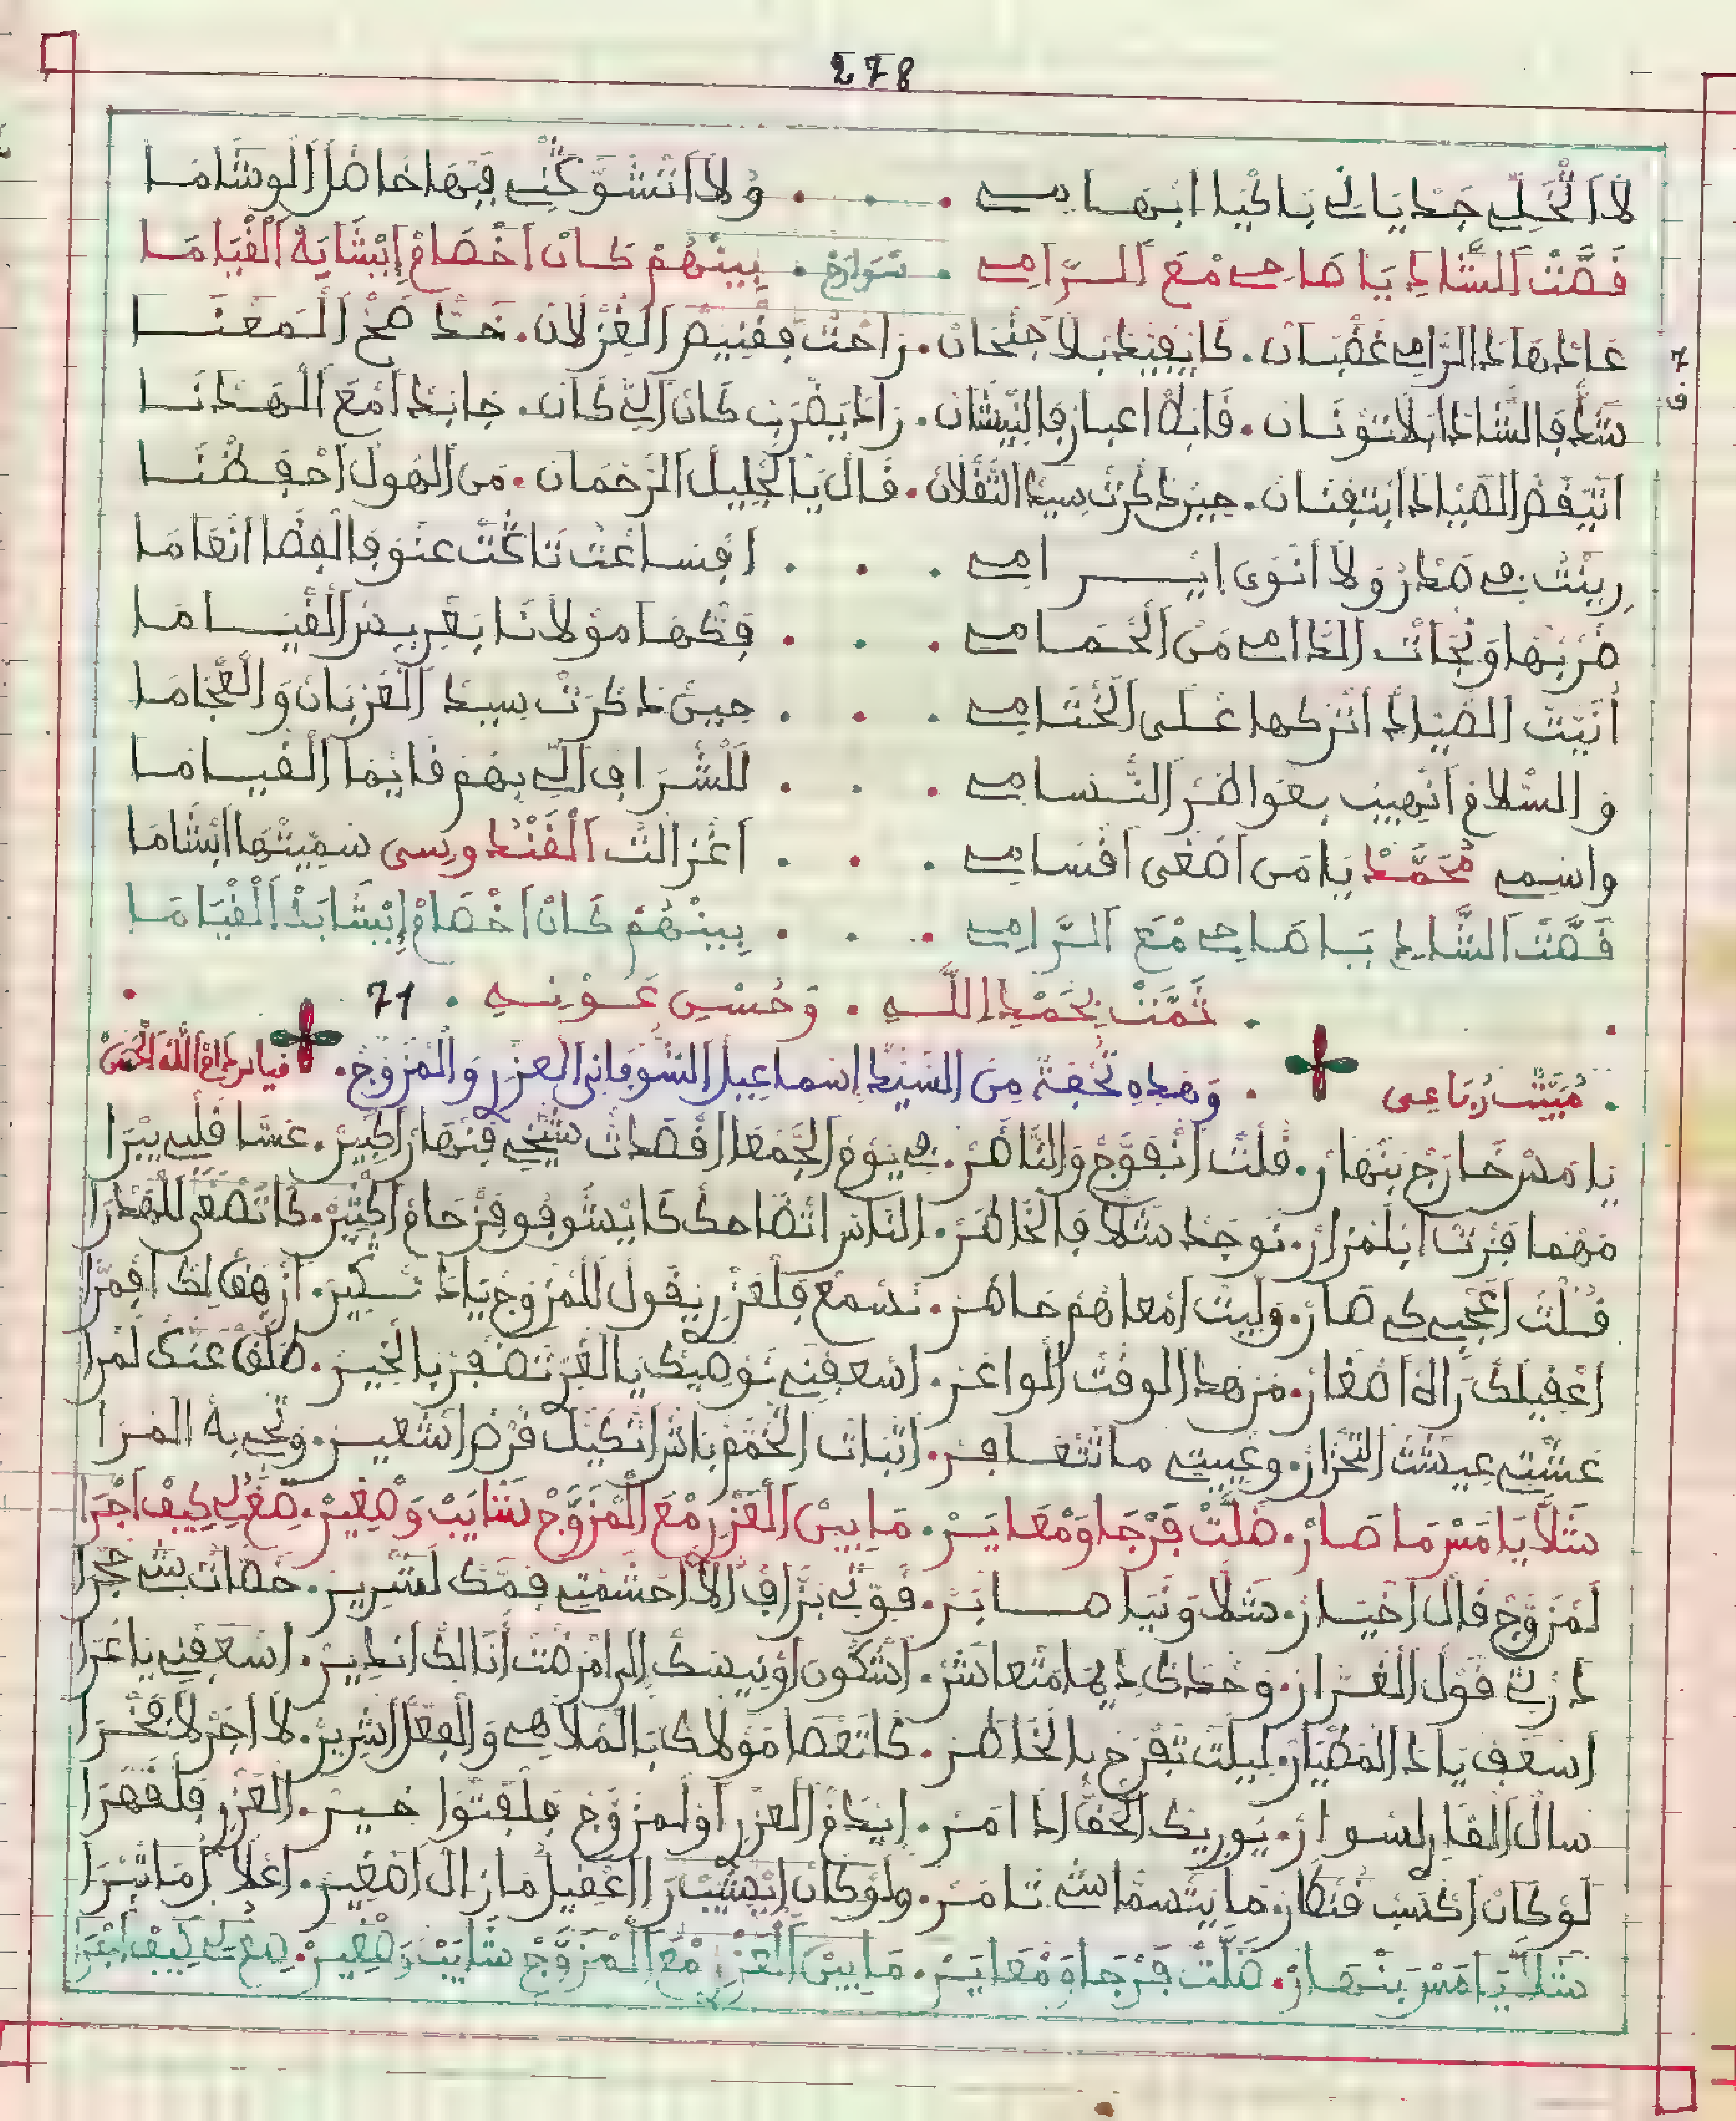 278
لا اتخلي جديا لي باكيا ابنها مي . . . ولا انشوكني فيها خاطر الوشاما
قصت الشاد يا صاحي مع الرامي . سوارح . بينهم كان اخصام إبشاية القياما
عاد هاد الرامي غضبان . كايفيظ بلا جنحان . زاحت فقنيص الغزلان . حتا صح المعنا
7
ف
شد فالشاد ابلا تونان . قابط اعبار فالنيشان . زاد يضرب كان الي كان . جا بد امع الهدنا
انتيقض الصياد ابتيفتان . حين ذكرت سيد الثقلان . قال يا الجليل الرحمان . من الهول احفظنا
ريت في صدر ولا انوى ايرامي . . . افساعت تاكت عنو فالفضا انعاما
ضربها ونجات الدامي من الحمامي . . . فكها مولانا بغريض القياما
أنيت الصياد اتركها على الختامي . . . حين ذكرت سيد العربان والعجاما
و السلام انهيب بعواطر النسامي . . . للشراف الي بهم قايما القياما
واسمي محمد يا من اصغى اقسامي . . . اغزالت القندوسي سميتها ابشاما
قصت الشاد يا صاحي مع الرامي . . . بينهم كان اخصام إبشابة القياما
. تمت بحمد الله . وحسن عونه . 71
. مبيت رباعي . وهذه تحفة من السيد إسماعيل السوفاني العزري والمزوج . قياس دام الله الحسن
يا مس خارج بنهار . قلت انفوج والناضر . في يوم الجمعا اقصدت شيخي فنهار اكبير . عسا قلبي يبرا
مهما قربت ابلمزار . نوجد شلا فالخاطر . الناس اتضاحك كايشوفو فزحام اكبير . كاتصغى للهدرا
قلت اعجبي كي صار . وليت امعاهم حاضر . نسمع فلعزري يقول للمزوج ياد سكير . ازهق لك اقمرا
اعقيلك راه اصغار . من هد الوقت الواعر . اسعفني نوصيك يا الغر تضفر بالخير . طلق عنك لمرا
عشتي عيشت الحرار . وعييتي ما تتغافر . اتبات الخمم باش اتكيل قرص اشعير . وتجيبه المرا
شلا يا مس ما صار . ضلت فرجا ومعاير . ما بين العزري مع المزوج شايب وصغير . صغ لي كيف اجرا
لمزوج قال اخيار . شلا ونيا صابر . قو لي بزاف الا احشمتي فمك لشرير . خطات شي حجرا
درتي قول الغرار . وحدك ديما متعاشر . اشكون اونيسك إلا مرضت أنا لك انذير . اسعفني يا غرا
اسعف ياد المطيار . ليلت تفرح بالخاطر . كاتعصا مولاك بالملاهي والفعل الشرير . لا اجر لا فخرا
سال القاري لسوار . يوريك الحق اذا امر . ايذم العزري اولمزوج فلفتوا خير . العزري فلقهرا
لوكان اكسب قنطار . ما يتسماشي تامر . ولوكان ايشيب را اعقيل مازال اصغير . اعلا امايترا
شلا يا مس بنهار . ضلت فرجا ومعاير . ما بين العزري مع المزوج شايب وصغير . صغ لي كيف اجرا